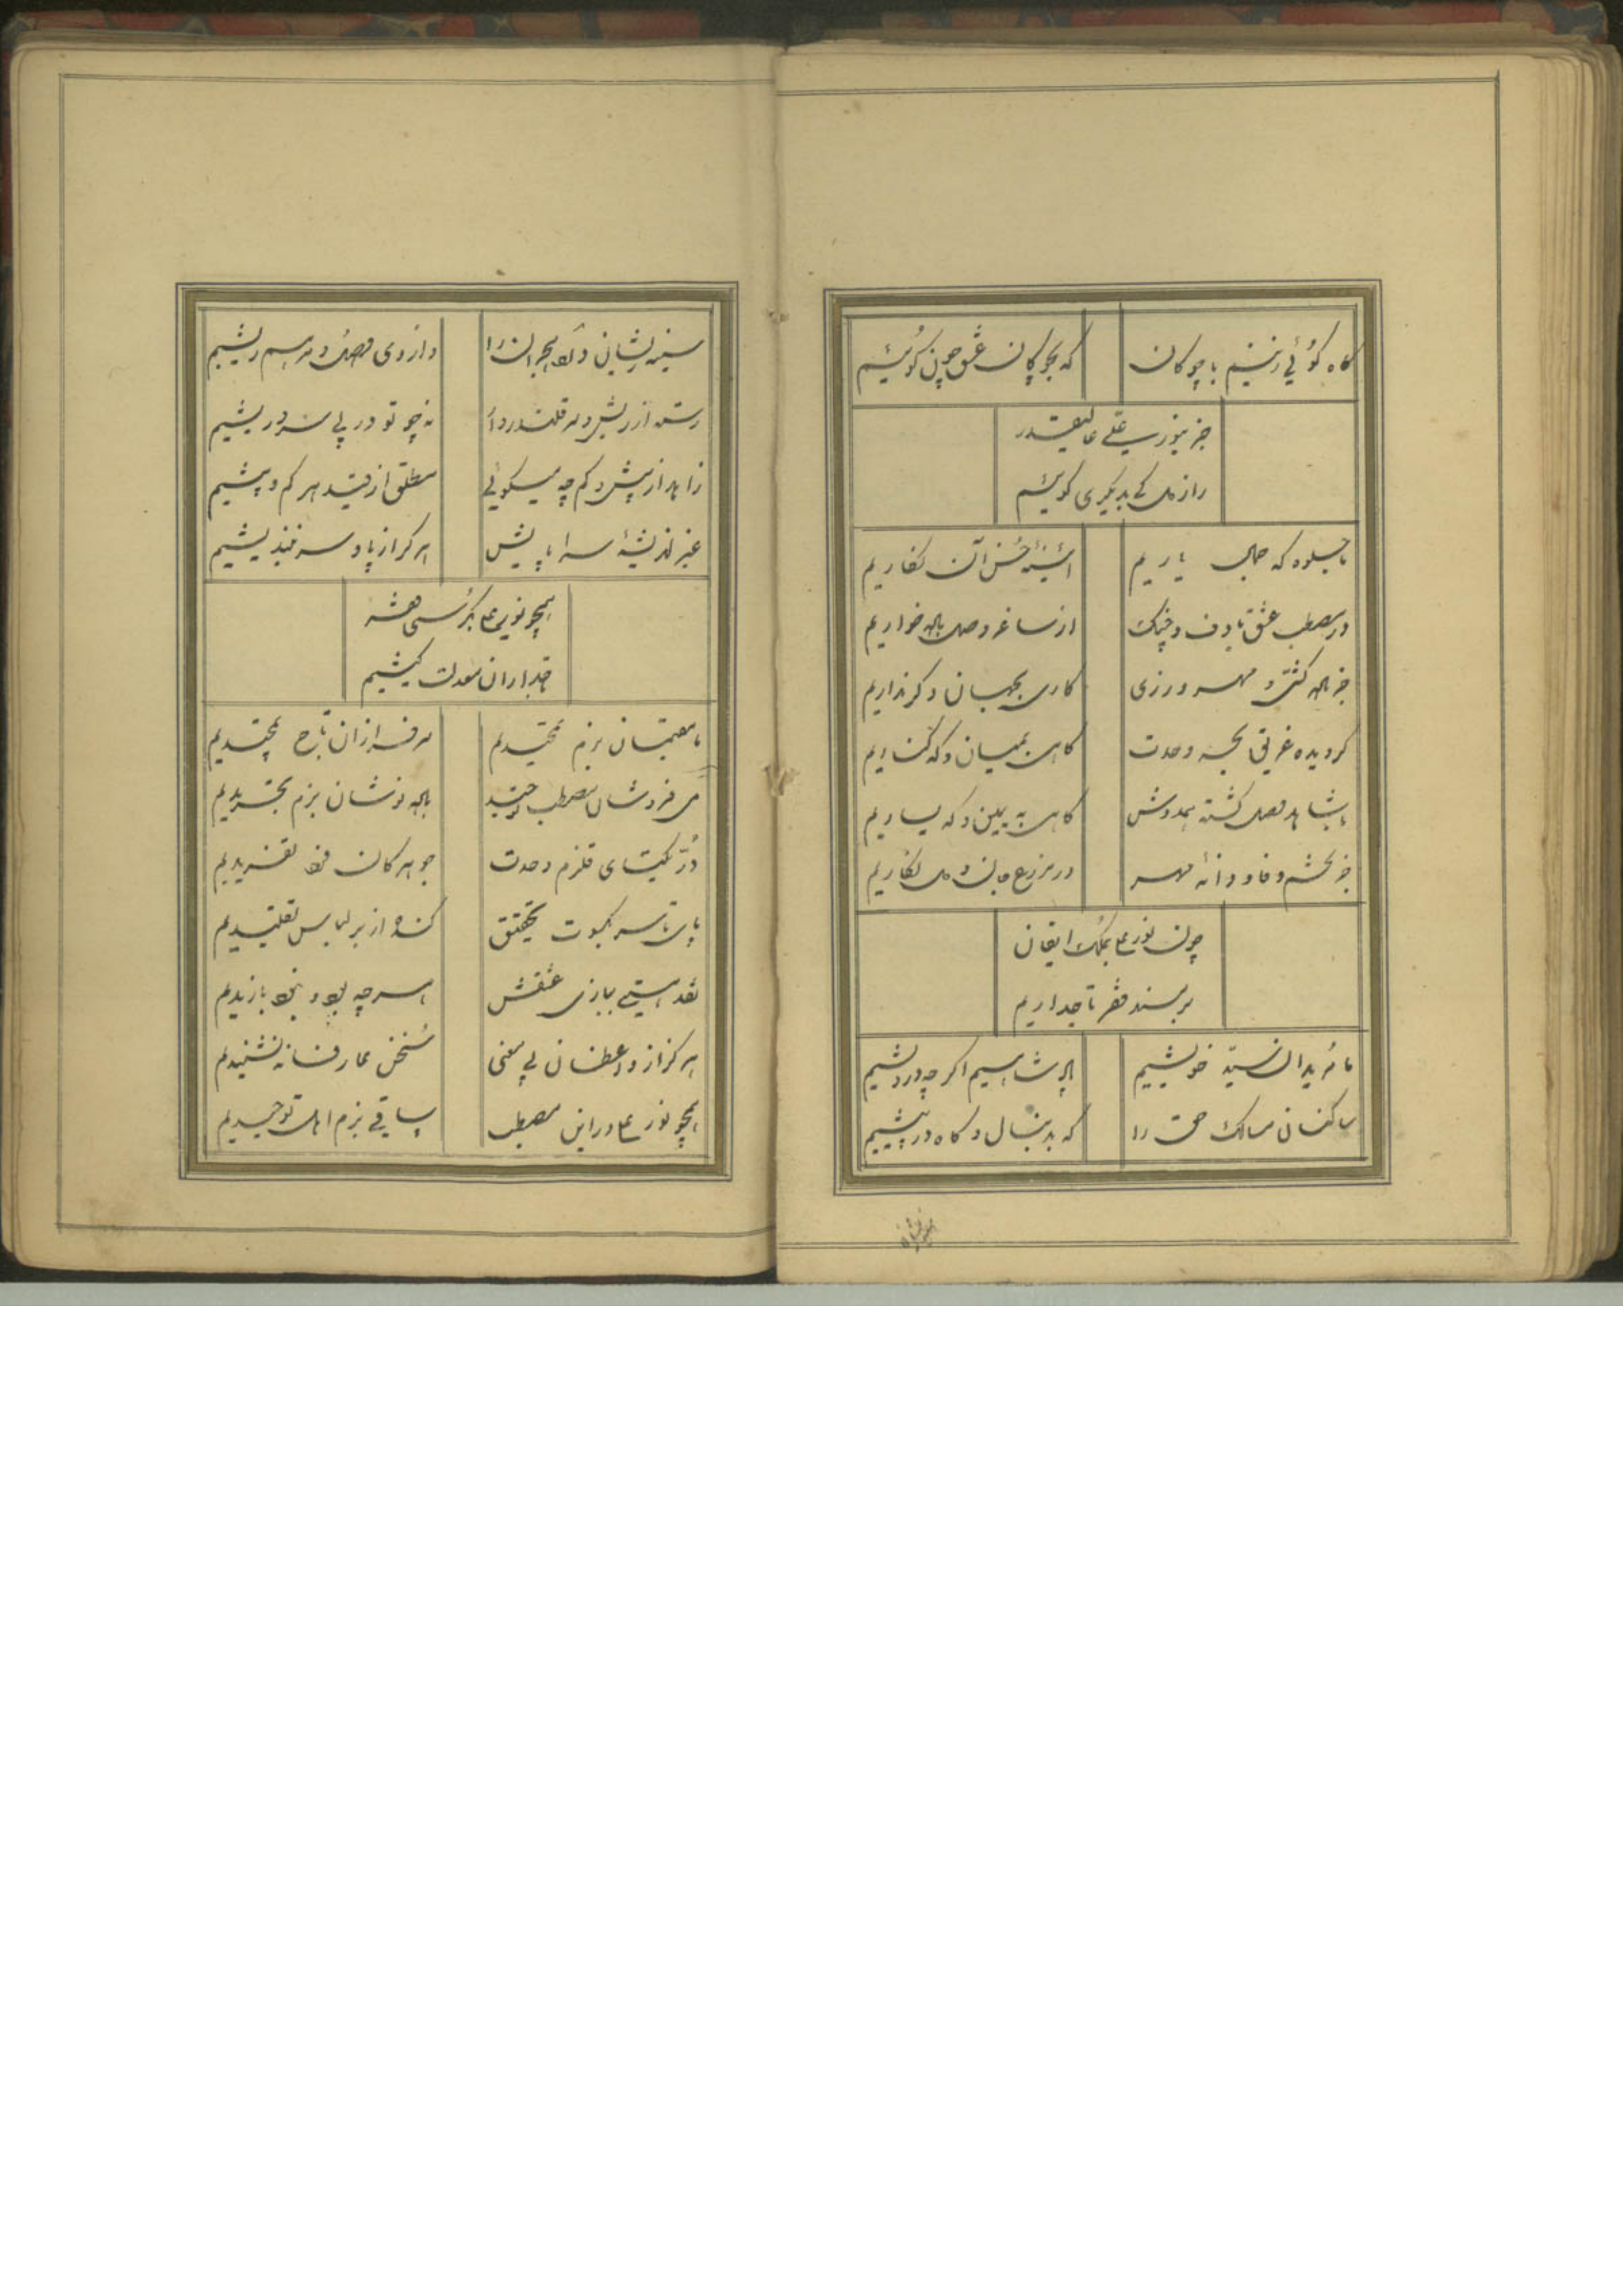 گاه گوئی زنیم با چوگان که بچوگان عشق چون گوئیم
جز بنور علی عالیقدر
راز دل کی بدیگری گوئیم
ما جلوه که جمال یاریم آئینه حسن آن نگاریم
در مصطب عشق با دف و چنک از ساغر وصل باده خواریم
جز باده کشی و مهر ورزی کاری بجهان دگر نداریم
گردیده غریق بحر وحدت گاهی بمیان و گه کناریم
با شاهد وصل گشته همدوش گاهی به یمین و گه یساریم
جز تخم وفا و دانه مهر در مزرع جان و دل نکاریم
چون نور علی بملک ایقان
بر مسند فقر تاجداریم
ما مریدان سید خویشیم پادشاهیم اگر چه درویشیم
ساکنان مسالک حق را که بدنبال و گاه در پیشیم
سینه ریشان درد هجران را داروی وصل و مرهم ریشیم
رسته از ریش و قلندروار نه چو تو در پی سر و ریشیم
زاهد از بیش و کم چه میگوئی مطلق از قید هر کم و بیشیم
غیر اندیشه سراپایش هرگز از پا و سر نیندیشیم
همچو نور علی بکرسی هشه
تاجداران معدلت کیشیم
ما مقیمان بزم تمجیدیم سرفرازان تاج تمجیدیم
می فروشان مصطب توحید باده نوشان بزم تجریدیم
در یکتای قلزم وحدت جوهر کان فرد تفریدیم
پای تا سر بکسوت تحقیق کنده از بر لباس تقلیدیم
نقد هستی ببازی عشقش هر چه بود و نبود بازیدیم
هرگز از واعظان بی معنی سخن عارفانه نشنیدیم
همچو نور علی در این مصطب ساقی بزم اهل توحیدیم